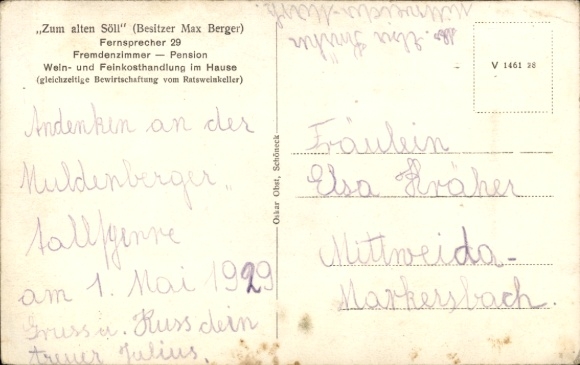 „Zum alten Söll“ (Besitzer Max Berger)
Fernsprecher 29
Fremdenzimmer — Pension
Wein- und Feinkosthandlung im Hause
(gleichzeitige Bewirtschaftung vom Ratsweinkeller)
Andenken an der
Muldenberger
am 1. Mai 1929
Gruss u. Kuss dein
treuer Julius.
Oskar Obst, Schöneck
V 1461 28
Fräulein
Elsa Kräher
Mittweida-
Markersbach.